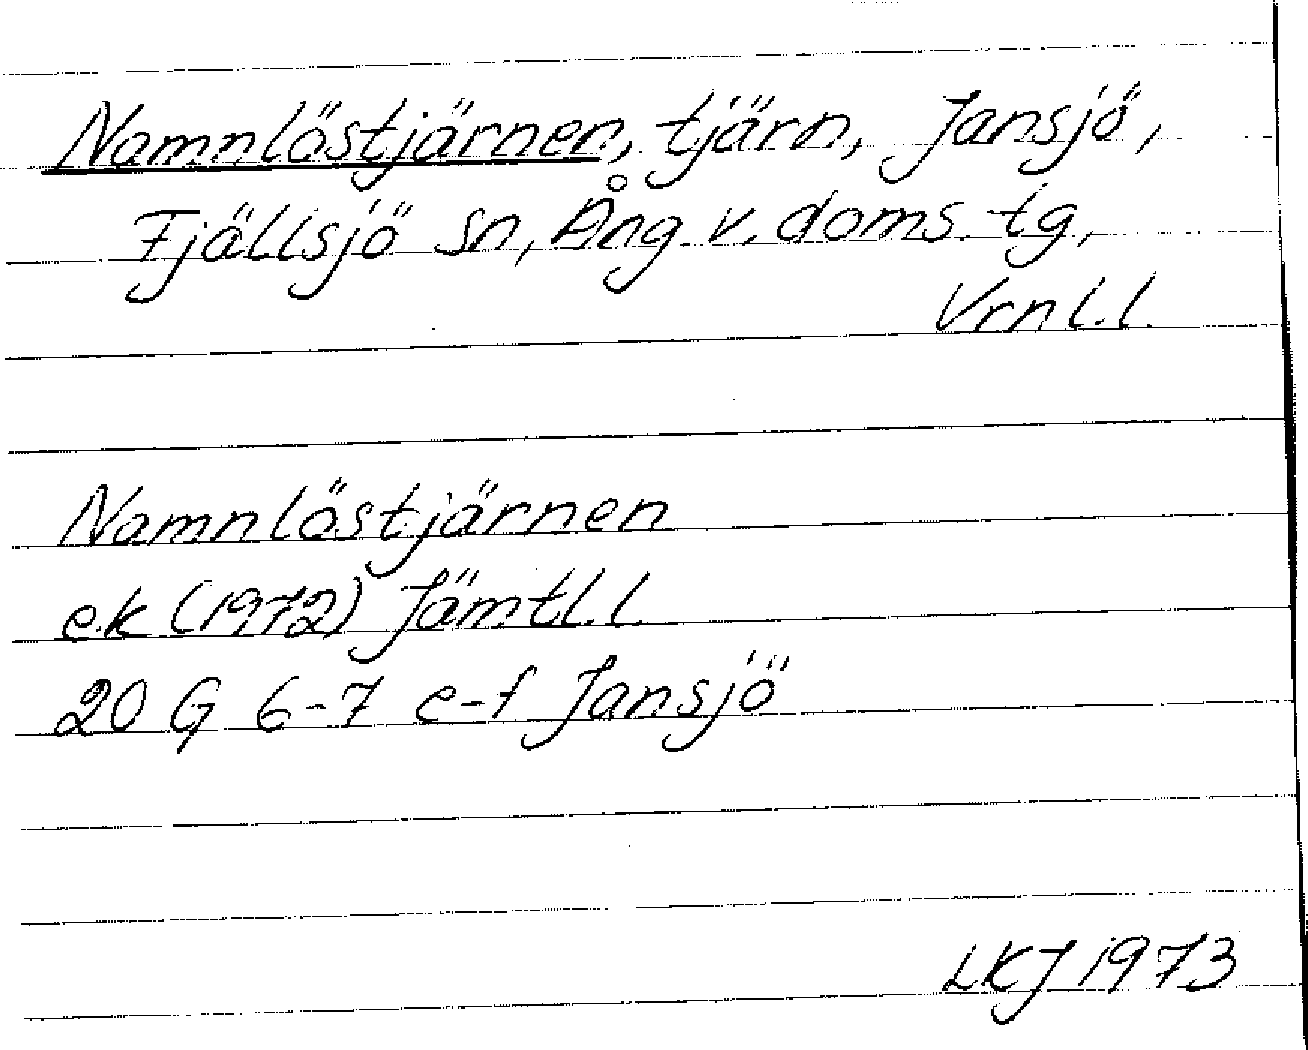 Namnlöstjärnen, tjärn, Jansjö,
Fjällsjö sn, Ång. v. doms. tg,
Vrnl.l.
Namnlöstjärnen
e.k (1972) Jämtl.l.
20 G 6-7 e-f Jansjö
LKJ 1973